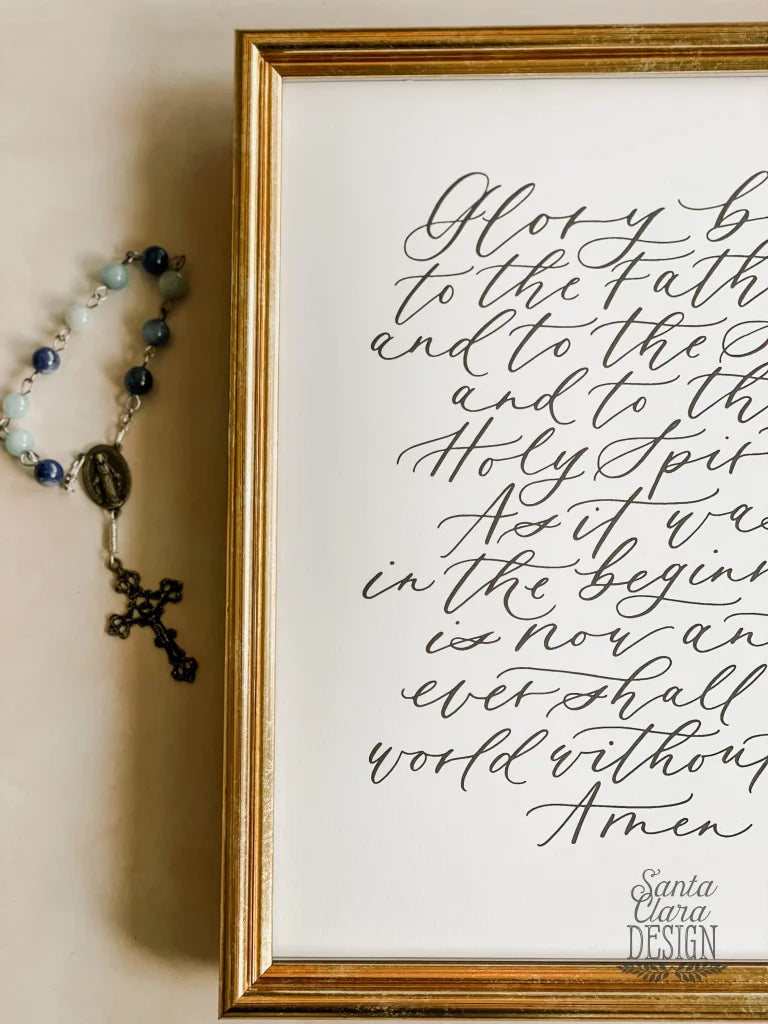 Glory b
to the Fath
and to the S
and to th
Holy Spir
As it was
in the beginn
is now an
ever shall
world without
Amen
Santa
Clara
DESIGN